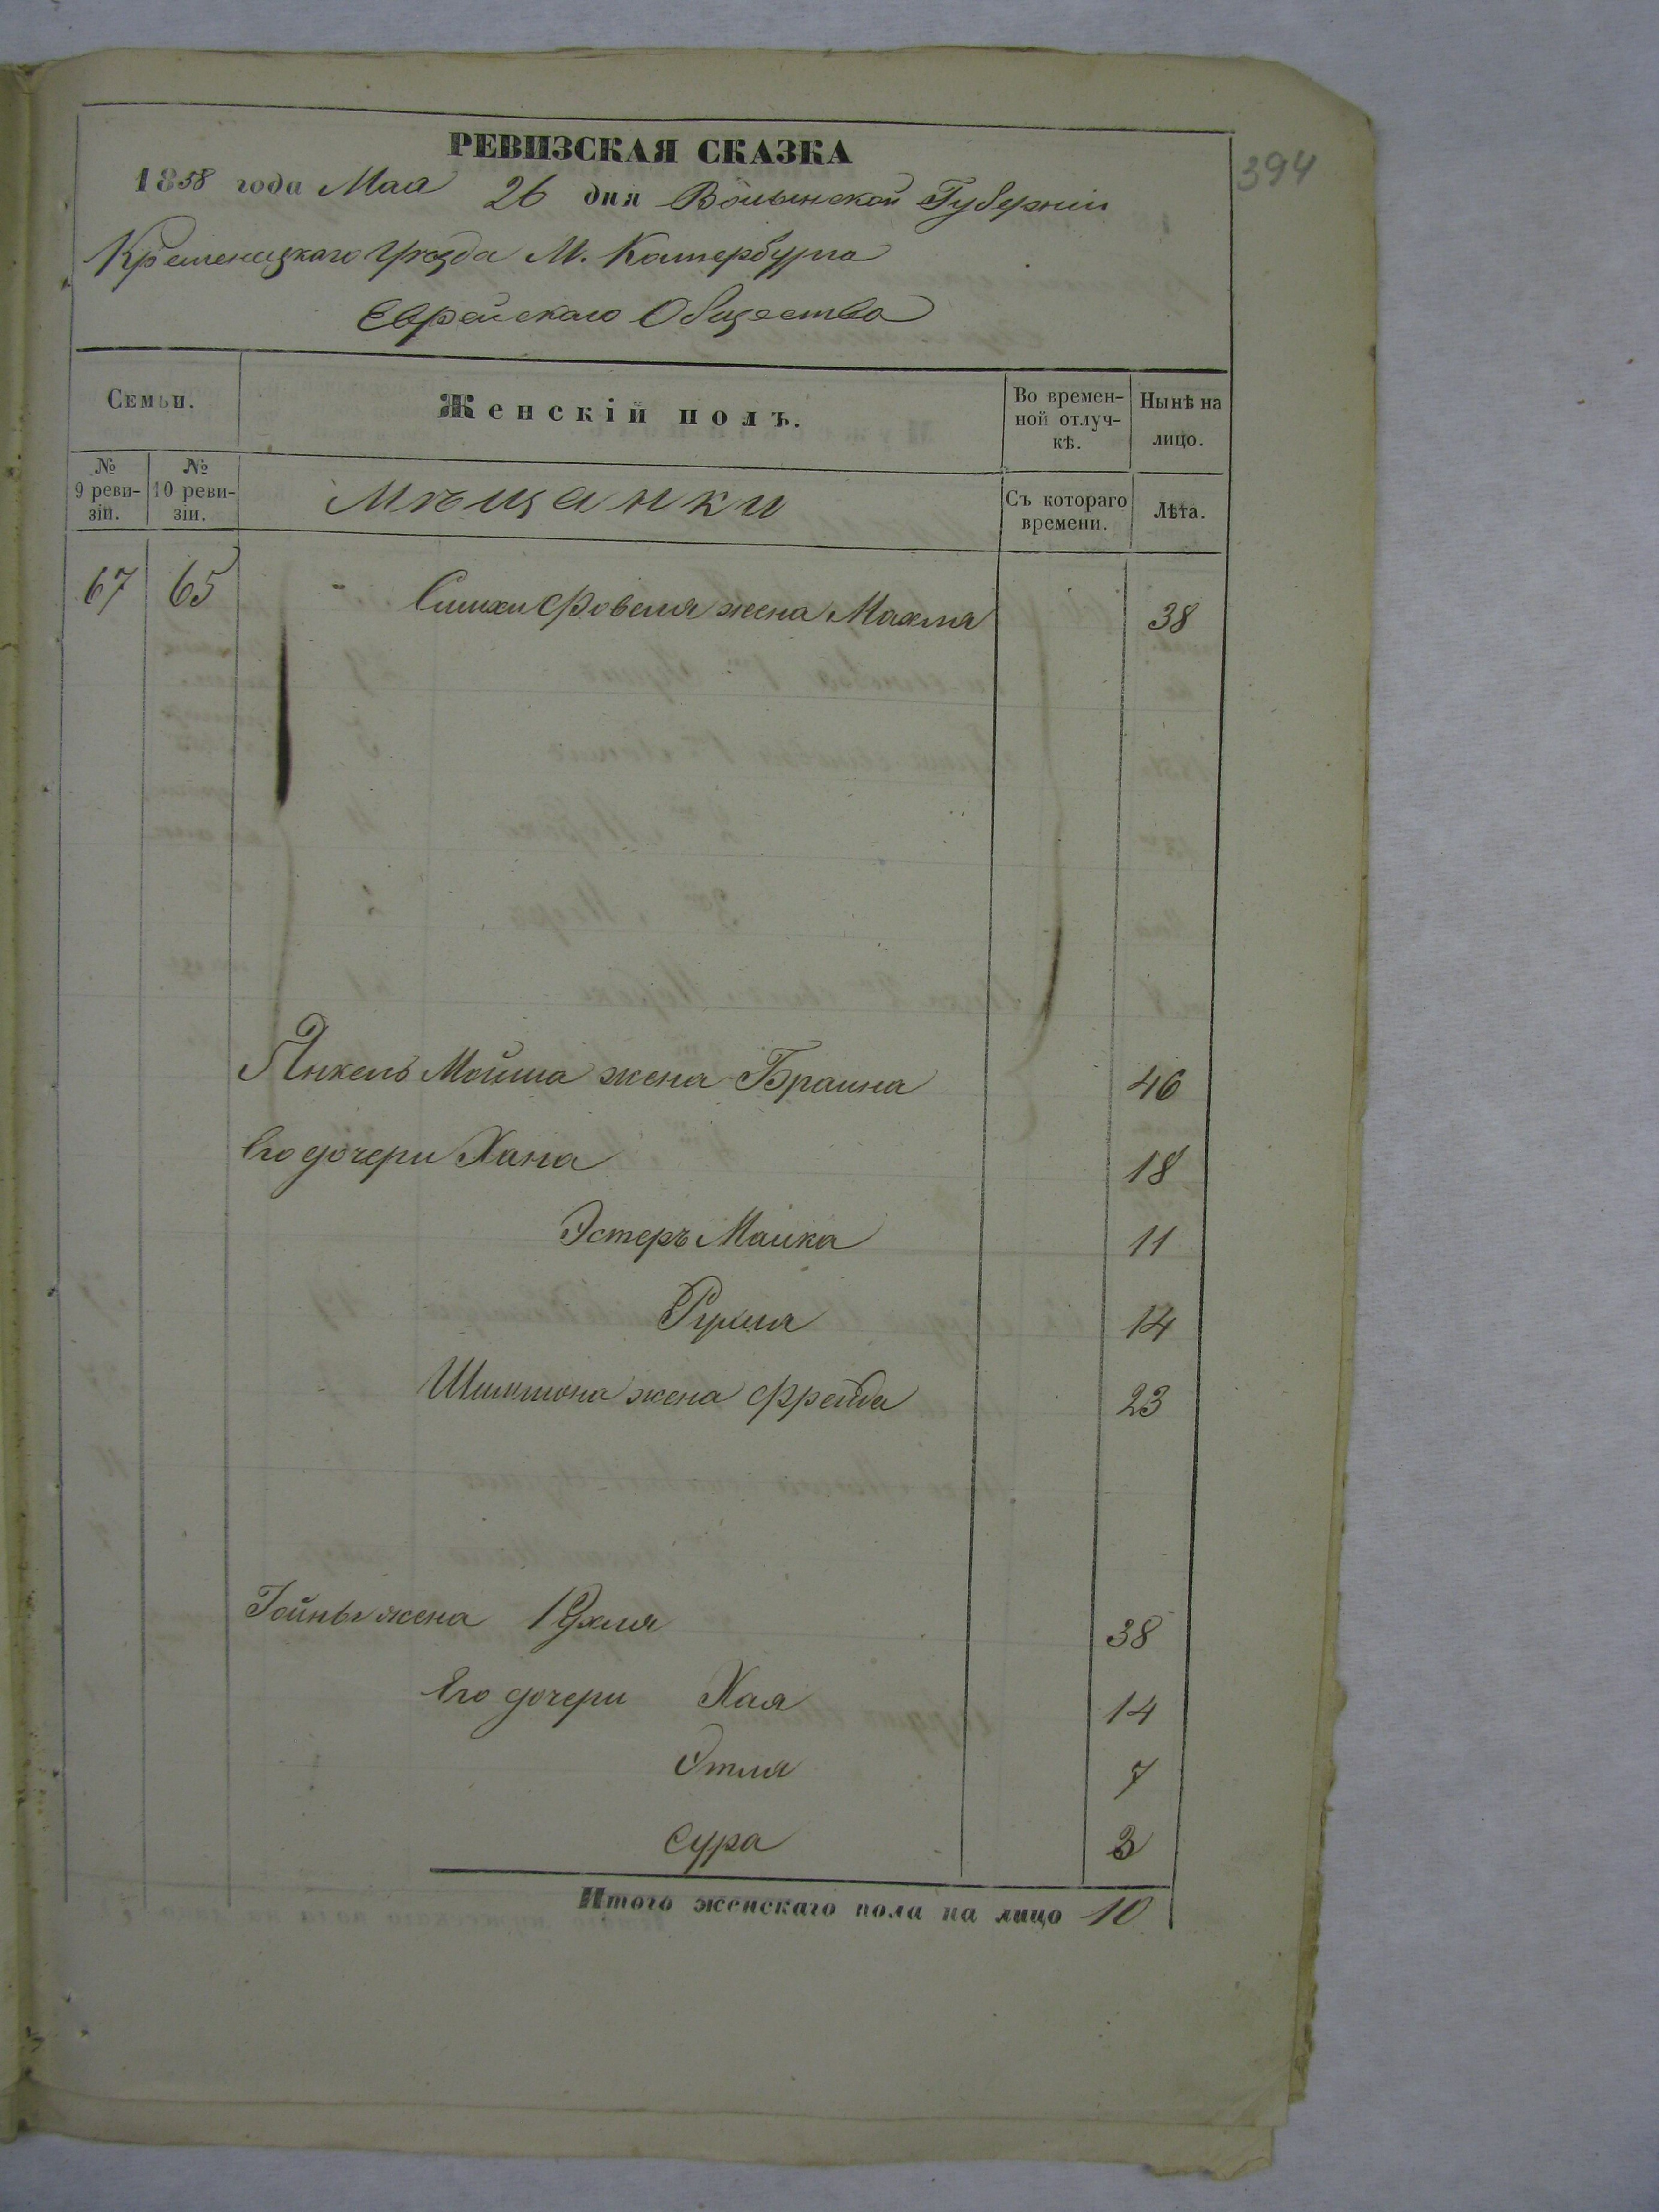 394
РЕВИЗСКАЯ СКАЗКА
1858 года Мая 26 дня Волынской Губернiи
Кременецкаго Уѣзда М. Катербурга
Еврейскаго Общества
Семьи.
Женскiй полъ.
Во времен-
ной отлуч-
кѣ.
Нынѣ на
лицо.
№
9 реви-
зiи.
№
10 реви-
зiи.
Мѣщанки
Съ котораго
времени.
Лѣта.
67 65 Фовеля жена Махля 38
Янкель Мойша жена Браина 46
Его дочери Хана 18
Эстеръ Малка 11
Рухля 14
жена Фрейда 23
Iойны жена Рухля 38
Его дочери Хая 14
Этля 7
Сура 3
Итого женскаго пола на лицо 10